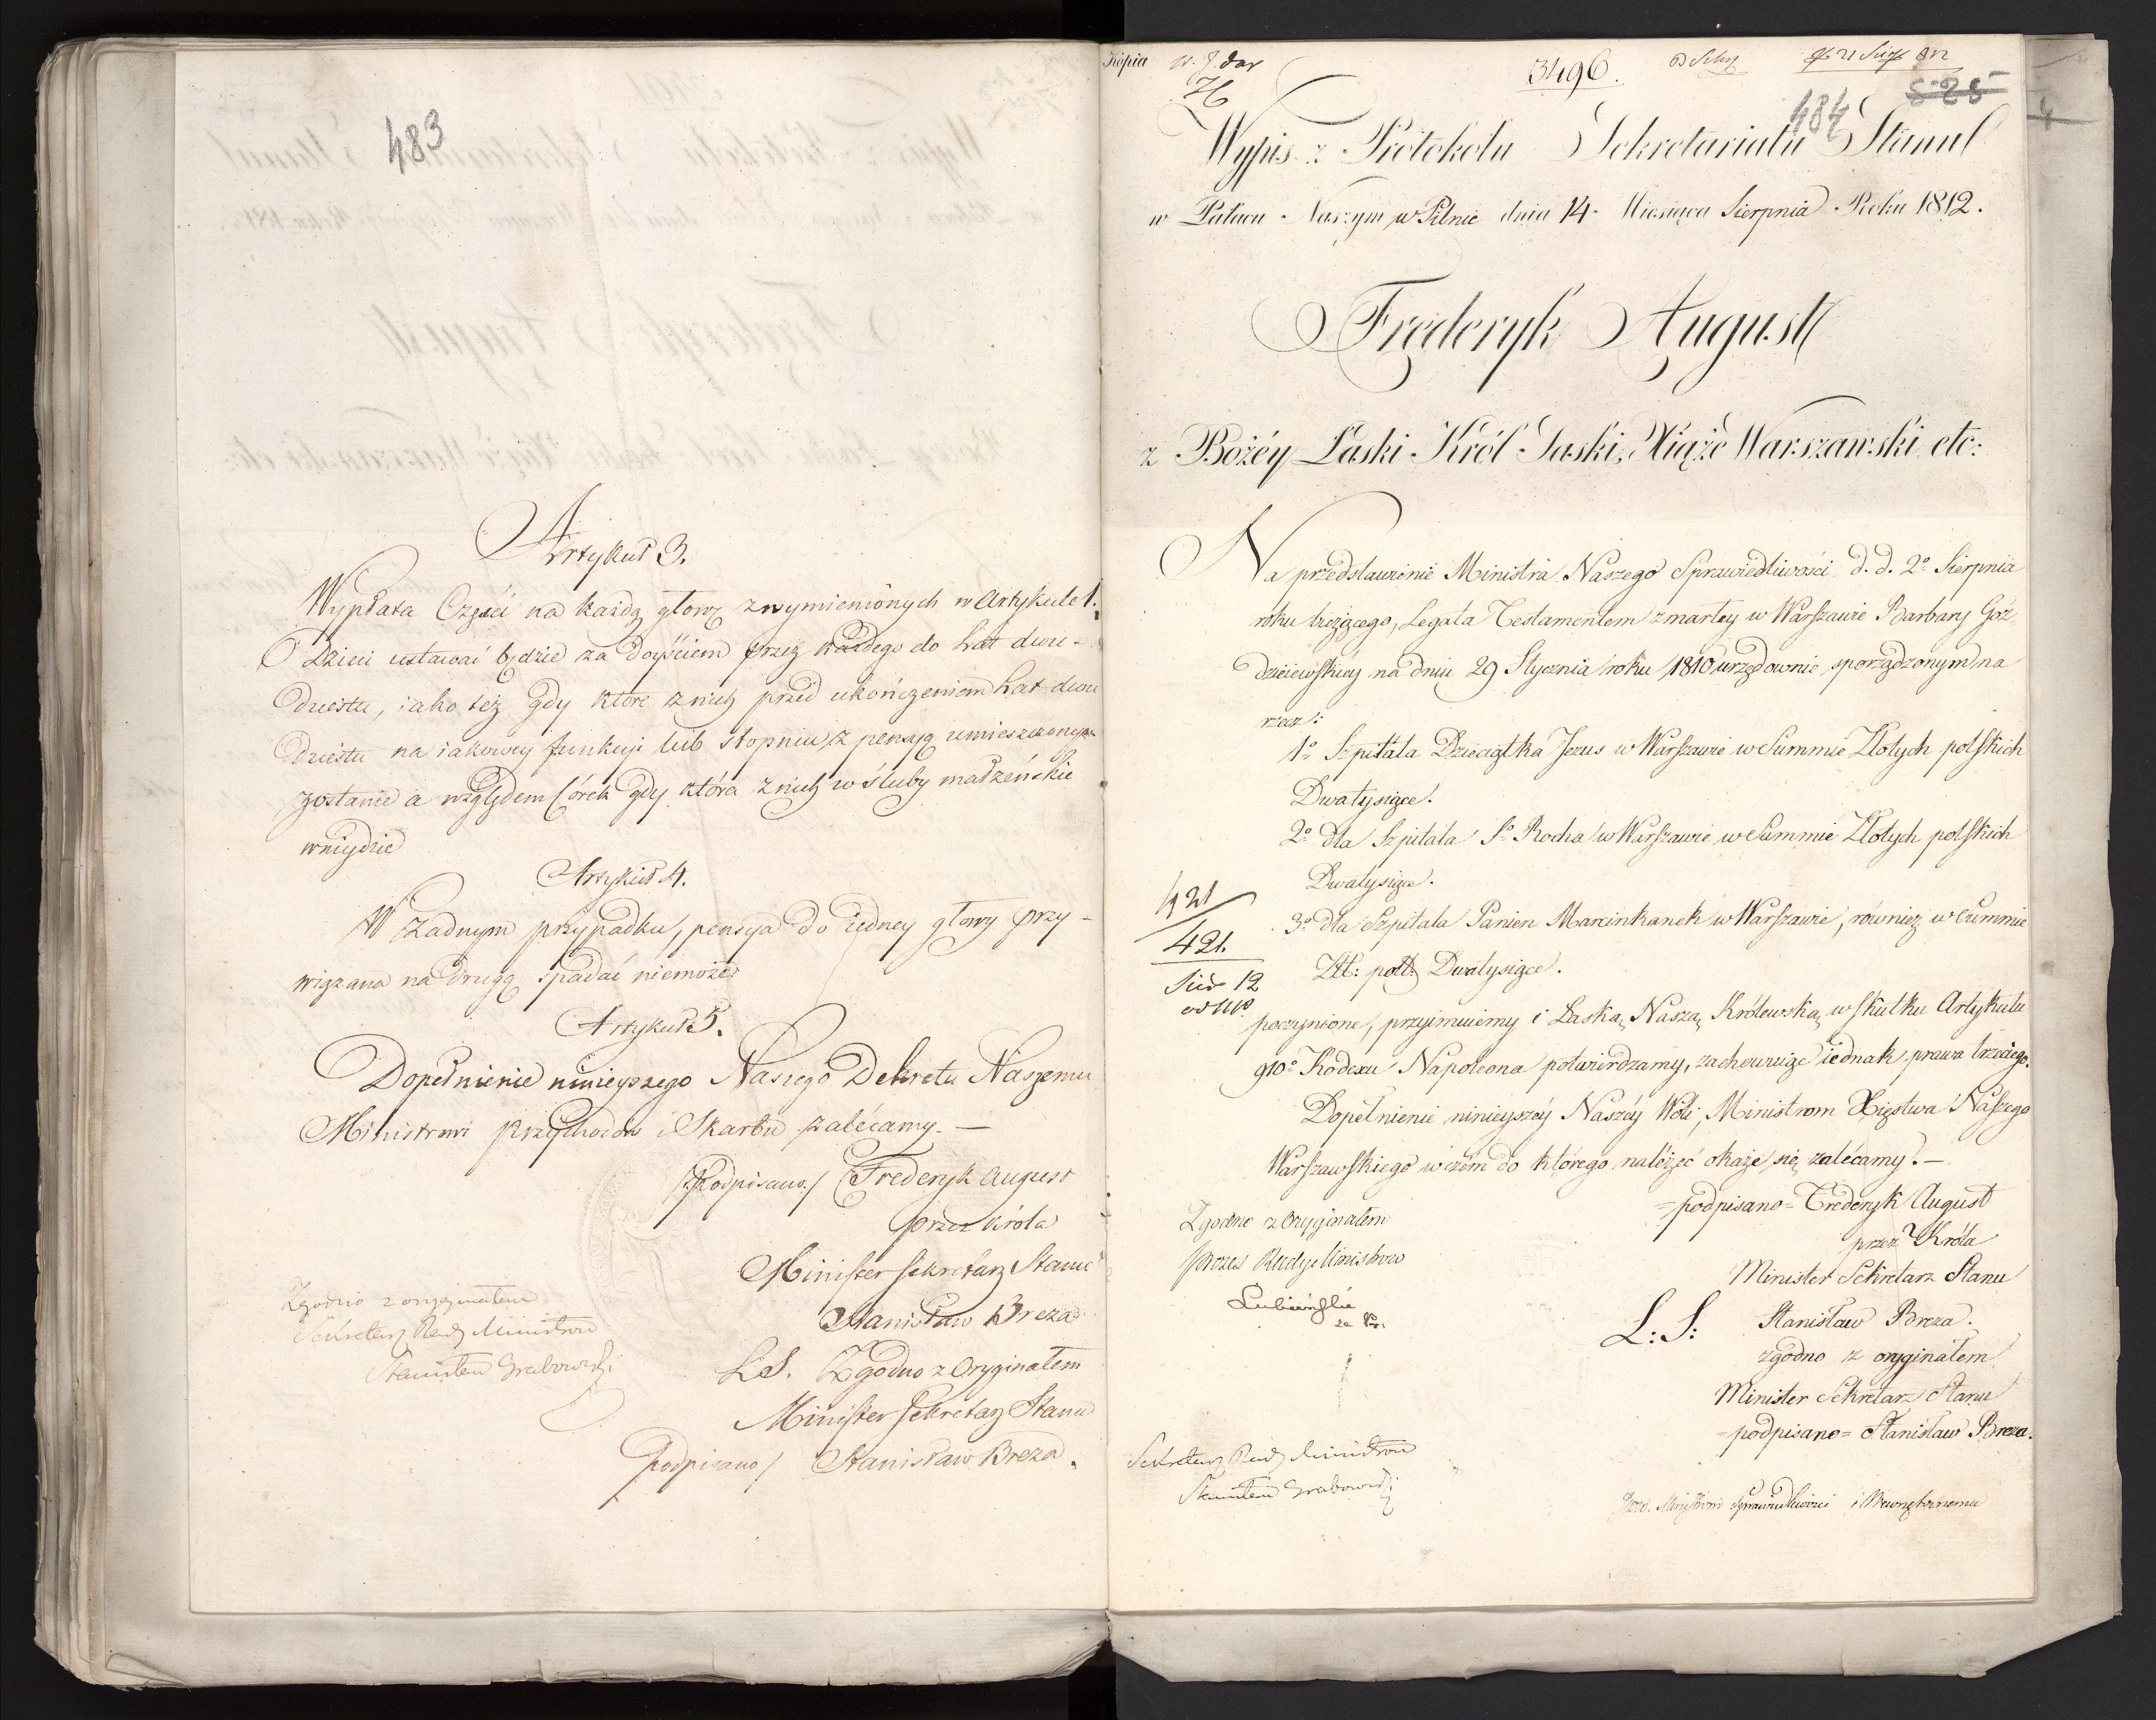 483
Artykuł 3.
Wypłata Części na każdą głowę z wymienionych w Artykule 1.
Dzieci ustawać będzie za doyściem przez każdego do lat dwu-
dziestu, iako też gdy które z nich przed ukończeniem lat dwu
dziestu na iakowey funkcyi lub stopniu z pensyą umieszczonym
zostanie a względem Córek gdy która z nich w śluby małżeńskie
wniydzie
Artykuł 4.
W Żadnym przypadku, pensya do iedney głowy przy-
wiązana na drugą spadać niemoże
Artykuł 5.
Dopełnienie ninieyszego Naszego Dekretu Naszemu
Ministrowi Przychodów i Skarbu zalécamy. —
/Podpisano./ Frederyk August
przez Króla
Minister Sekretarz Stanu
Stanisław Breza
LS. Zgodno z Oryginałem
Minister Sekretarz Stanu
Podpisano/ Stanisław Breza.
Zgodno z oryginałem
Sekretarz Rady Ministrów
Stanisław Grabowski
Kopia
3496.
525
484
4
Wypis z Protokołu Sekretariatu Stanu
w Pałacu Naszym w Pilnic dnia 14. Miesiąca Sierpnia Roku 1812.
Frederyk August
z Bożéy Łaski Król Saski, Xiąże Warszawski etc:
Na przedstawienie Ministra Naszego Sprawiedliwości d. d. 2º Sierpnia
roku bieżącego, Legata Testamentem zmarłey w Warszawie Barbary Goz
dziejewskiey na dniu 29 Stycznia roku 1810 urzędownie sporządzonym na
rzecz:
1º Szpitala Dzieciątka Jezus w Warszawie w Summie Złotych polskich
Dwatysiące.
2º dla Szpitala Sº Rocha w Warszawie w Summie Złotych polskich
Dwatysiące.
3º dla Szpitala Panien Marcinkanek w Warszawie, również w Summie
Złł: poll: Dwatysiące.
421
421.
12
poczynione, przyimuiemy i Łaską Naszą Królewską w skutku Artykułu
910º Kodexu Napoleona potwierdzamy, zachowuiąc iednak prawa trzeciego.
Dopełnienie ninieyszéy Naszéy Woli, Ministrom Xięstwa Naszego
Warszawskiego w czém do którego należeć okaże się zalécamy. —
=podpisano= Frederyk August
przez Króla
Minister Sekretarz Stanu
L:S: Stanisław Breza.
zgodno z oryginałem
Minister Sekretarz Stanu
=podpisano= Stanisław Breza.
Zgodno z Oryginałem
Prezes Rady Ministrów
Lubieński
Sekretarz Rady Ministrów
Stanisław Grabowski
Ministrowi Sprawiedliwości i Wewnętrznemu